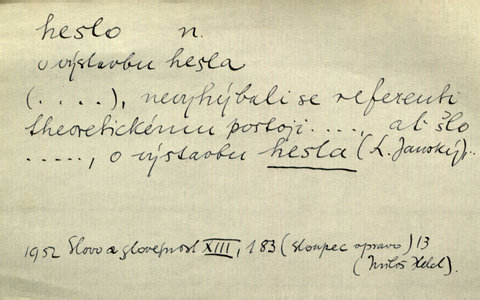 heslo n.
o výstavbu hesla
(. . . .), nevyhýbali se referenti
theoretickému postoji . . . ., ať šlo
. . . . ., o výstavbu hesla (L. Janský)..
1952 Slovo a slovesnost XIII, 183 (sloupec vpravo) 13
(Miloš Helcl).